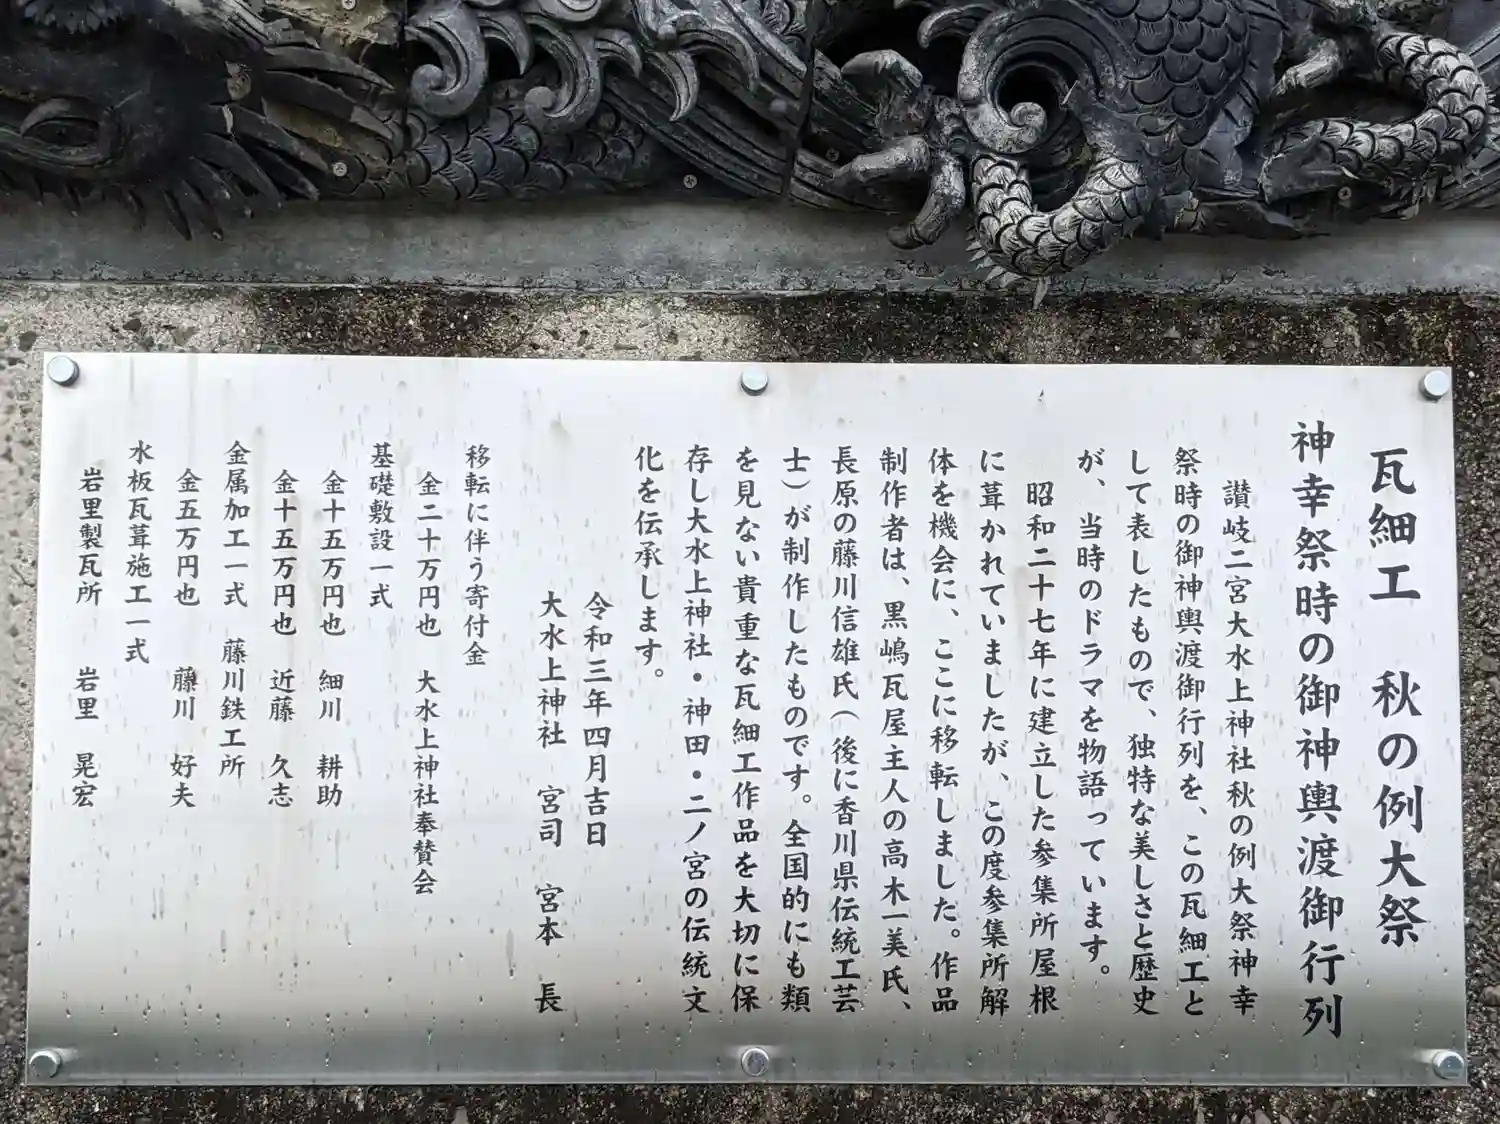 瓦細工 秋の例大祭
神幸祭時の御神輿渡御行列
讃岐二宮大水上神社秋の例大祭神幸
祭時の御神輿渡御行列を、この瓦細工と
して表したもので、独特な美しさと歴史
が、当時のドラマを物語っています。
昭和二十七年に建立した参集所屋根
に葺かれていましたが、この度参集所解
体を機会に、ここに移転しました。作品
制作者は、黒嶋瓦屋主人の高木一美氏、
長原の藤川信雄氏(後に香川県伝統工芸
士)が制作したものです。全国的にも類
を見ない貴重な瓦細工作品を大切に保
存し大水上神社・神田・二ノ宮の伝統文
化を伝承します。
令和三年四月吉日
大水上神社 宮司 宮本 長
移転に伴う寄付金
金二十万円也 大水上神社奉賛会
基礎敷設一式
金十五万円也 細川 耕助
金十五万円也 近藤 久志
金属加工一式 藤川鉄工所
金五万円也 藤川 好夫
水板瓦葺施工一式
岩里製瓦所 岩里 晃宏